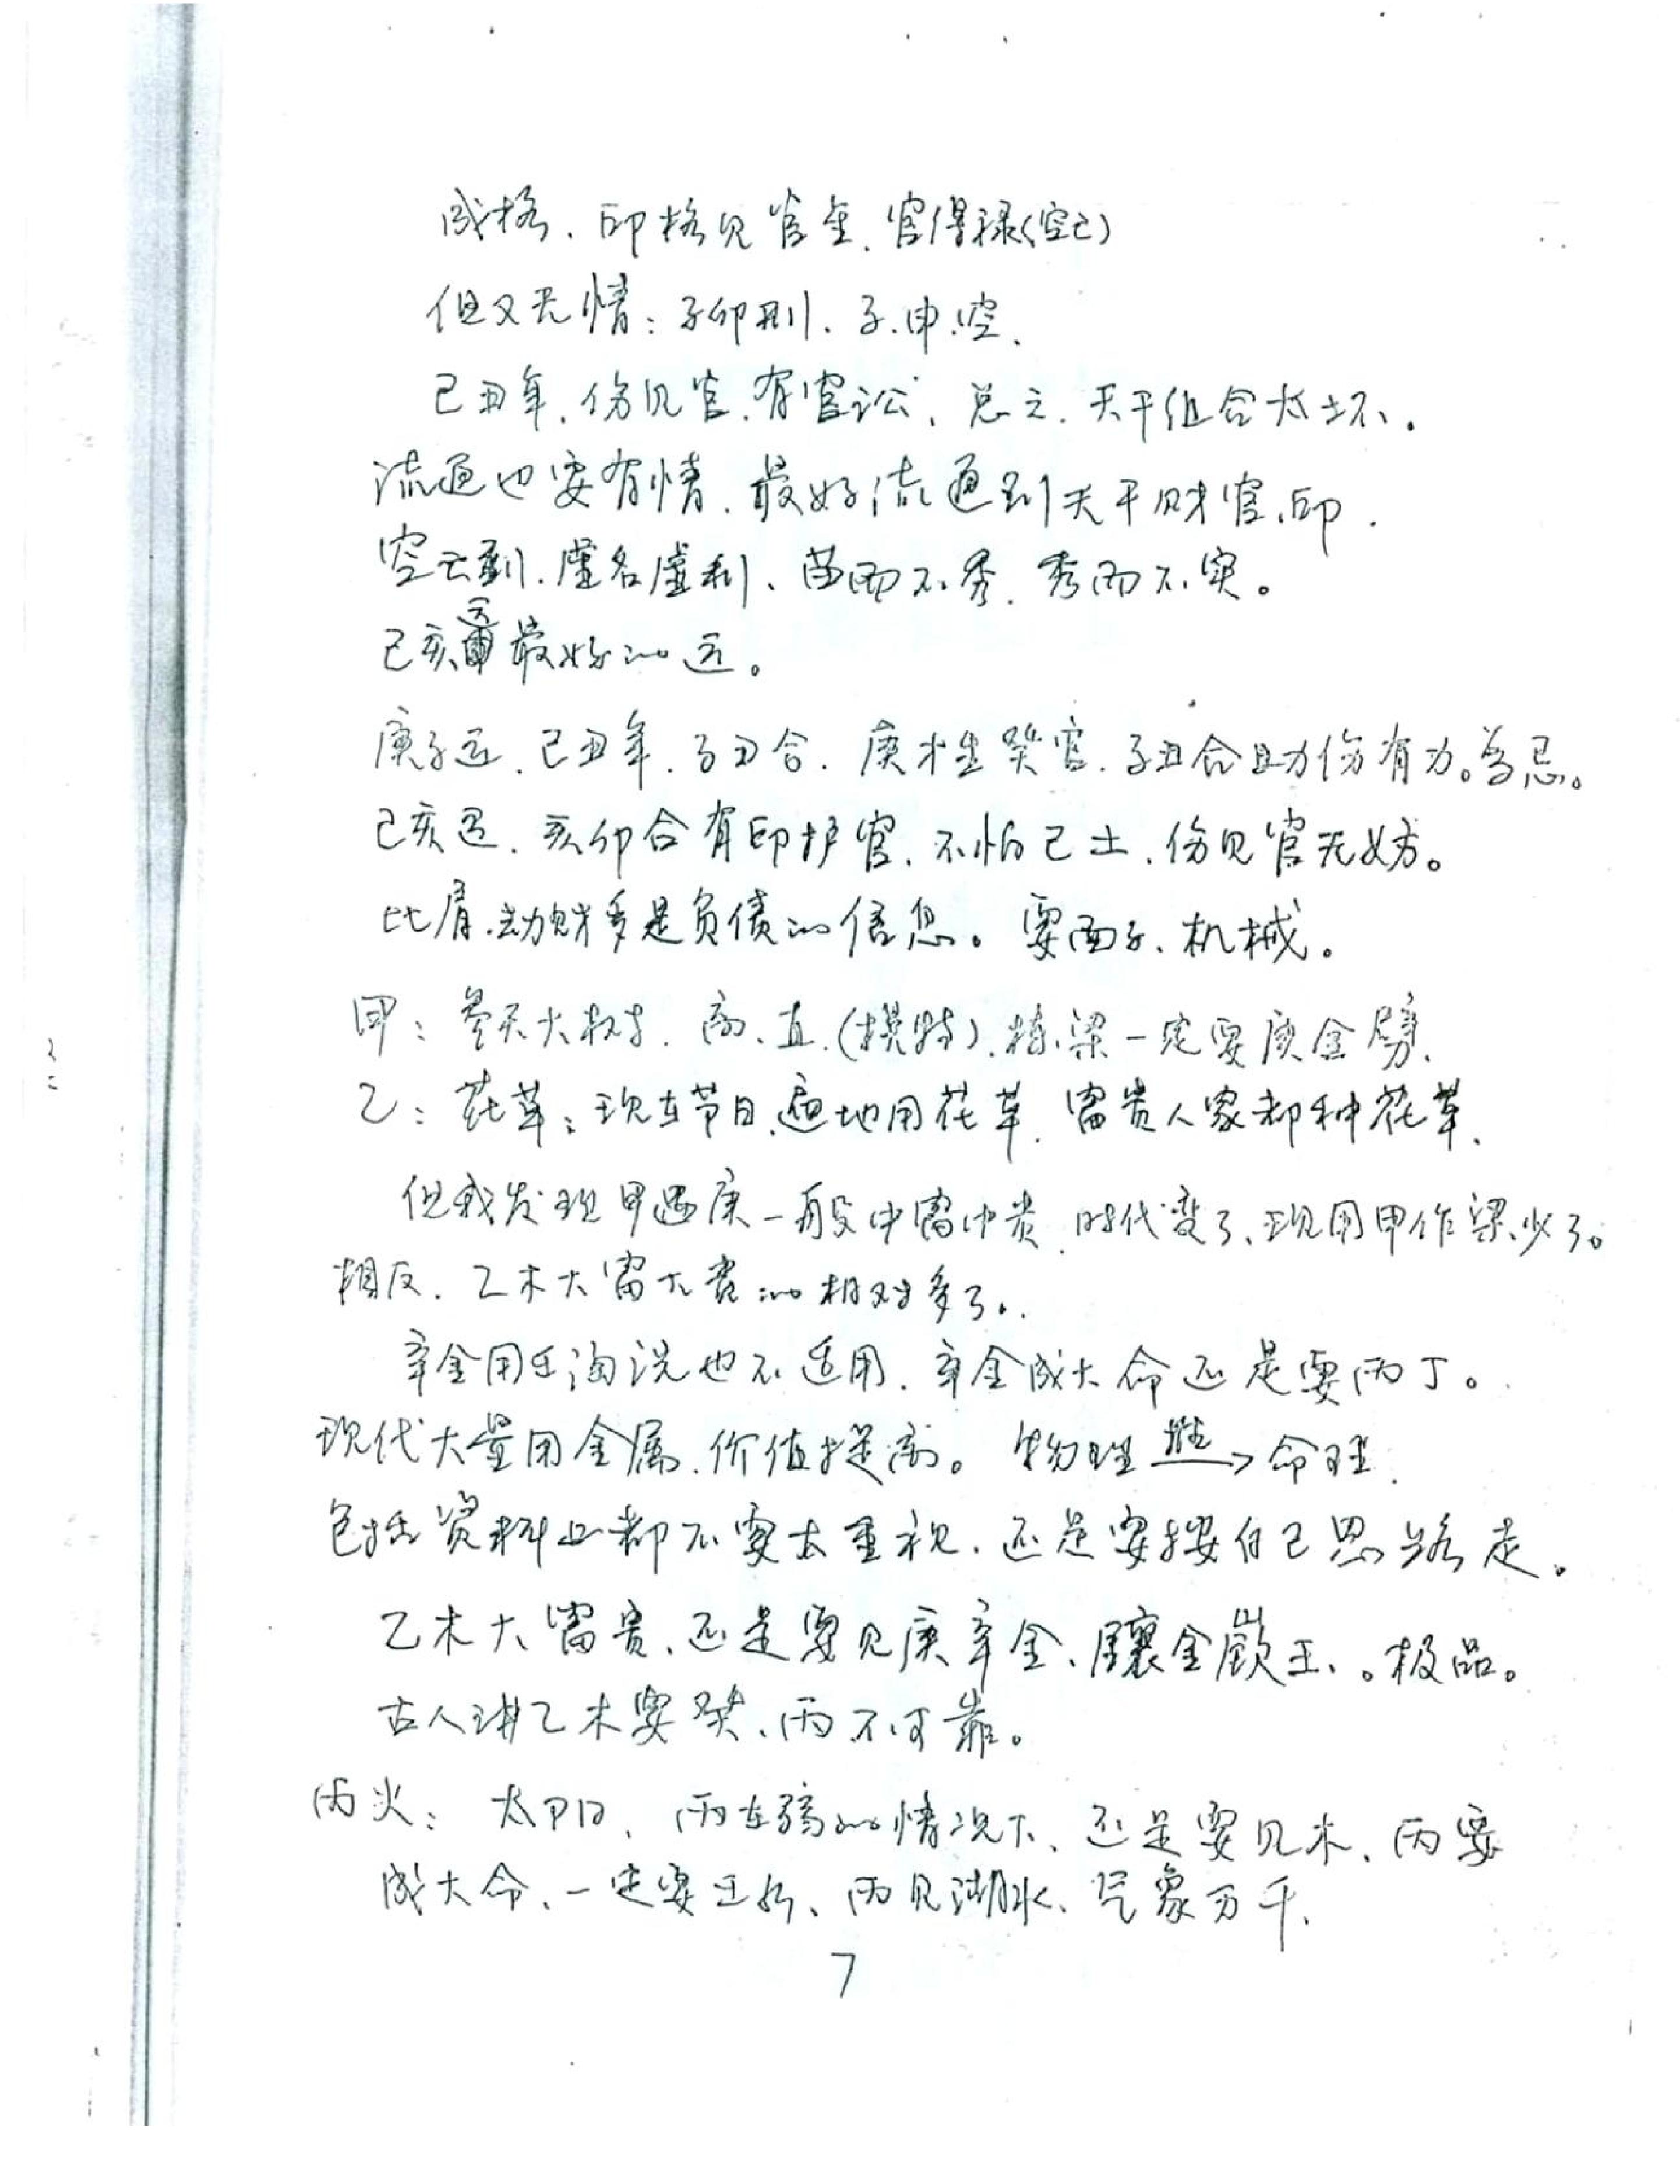 成格、印格见官星、官得禄(空亡)
但又无情：子卯刑、子、申空、
己丑年、伤见官、有官讼、总之、天干组合太坏、。
流通也要有情、最好流通到天干财官、印.
空亡到、虚名虚利、苗而不秀、秀而不实。
己亥运最好的运。
庚子运、己丑年、子丑合、庚才生癸官、子丑合助伤有力。为忌。
己亥运、亥卯合有印护官、不怕己土、伤见官无妨。
比肩、劫财多是负债的信息。要面子、机械。
甲：参天大树、高、直、(模特)、栋梁一定要庚金劈、
乙：花草；现在节日、遍地用花草、富贵人家都种花草、
但我发现甲遇庚一般中富中贵、时代变了、现用甲作梁少了。
相反、乙木大富大贵的相对多了。
辛金用壬淘洗也不适用、辛金成大命还是要丙丁。
现代大量用金属、价值提高。物理 推→ 命理.
包括资料上都不要太重视、还是要按自己思路走。
乙木大富贵、还是要见庚辛金、镶金嵌玉、。极品。
古人讲乙木要癸、丙不可靠。
丙火：太阳、丙在弱的情况下、还是要见木、丙要
成大命、一定要壬水、丙见湖水、气象万千、
7